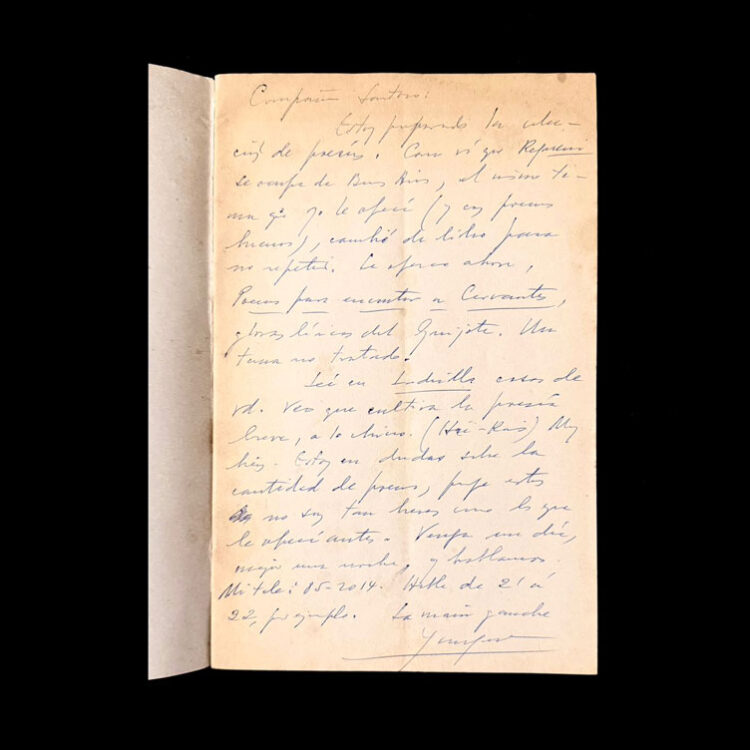 Compañ Santoro:
Estoy preparando la colec-
ción de poesías. Como vi que Refucilo
se ocupa de Buen Aires, el mismo te-
ma que yo le ofrecí (y en poemas
buenos), cambié de libro para
no repetir. Le ofrezco ahora,
Poemas para encontrar a Cervantes,
glosas líricas del Quijote. Un
tema no tratado.
Leí en Ludicilla cosas de
vd. Veo que cultiva la poesía
breve, a lo chino. (Hai-Kais) Muy
bien. Estoy en dudas sobre la
cantidad de poemas, pues estos
no son tan breves como los que
le ofrecí antes. Venga un día,
mejor una noche, y hablamos.
Mi tele: 85-2014. Hable de 21 a
22, por ejemplo. La main gauche